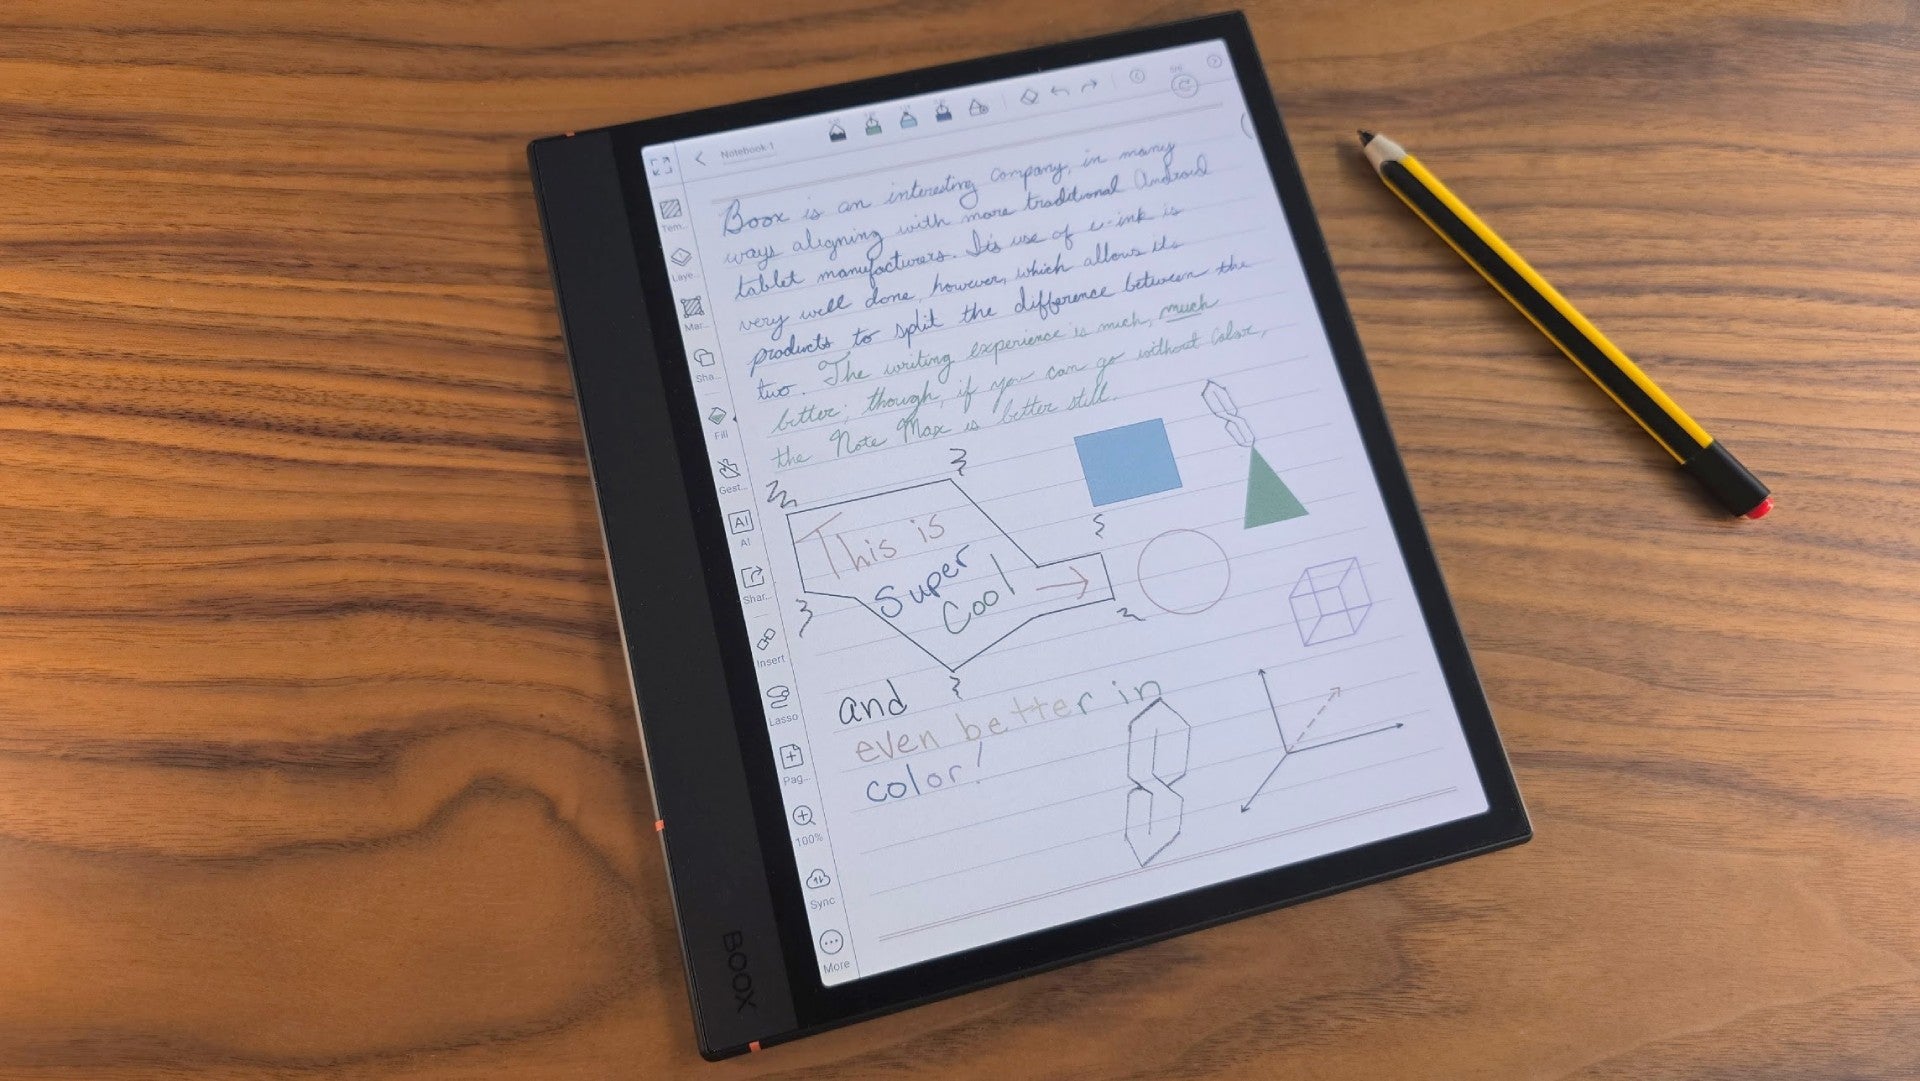 Notebook-1
Boox is an interesting company, in many
ways aligning with more traditional Android
tablet manufacturers. It's use of e-ink is
very well done, however, which allows its
products to split the difference between the
two. The writing experience is much, much
better, though, if you can go without color,
the Note Max is better still.
This is
Super
Cool
and
even better in
color!
Tem..
Laye..
Mar..
Sha..
Fill
Gest..
AI
AI
Shar..
Insert
Lasso
Pag..
100%
Sync
More
BOOX